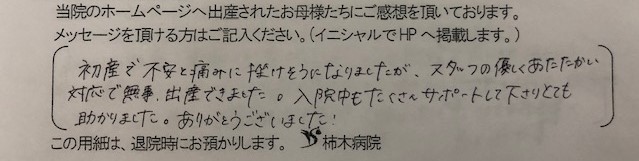 当院のホームページへ出産されたお母様たちにご感想を頂いております。
メッセージを頂ける方はご記入ください。（イニシャルでHPへ掲載します。）
初産で不安と痛みに挫けそうになりましたが、スタッフの優しくあたたかい
対応で無事、出産できました。入院中もたくさんサポートして下さりとても
助かりました。ありがとうございました！
この用紙は、退院時にお預かりします。 柿木病院